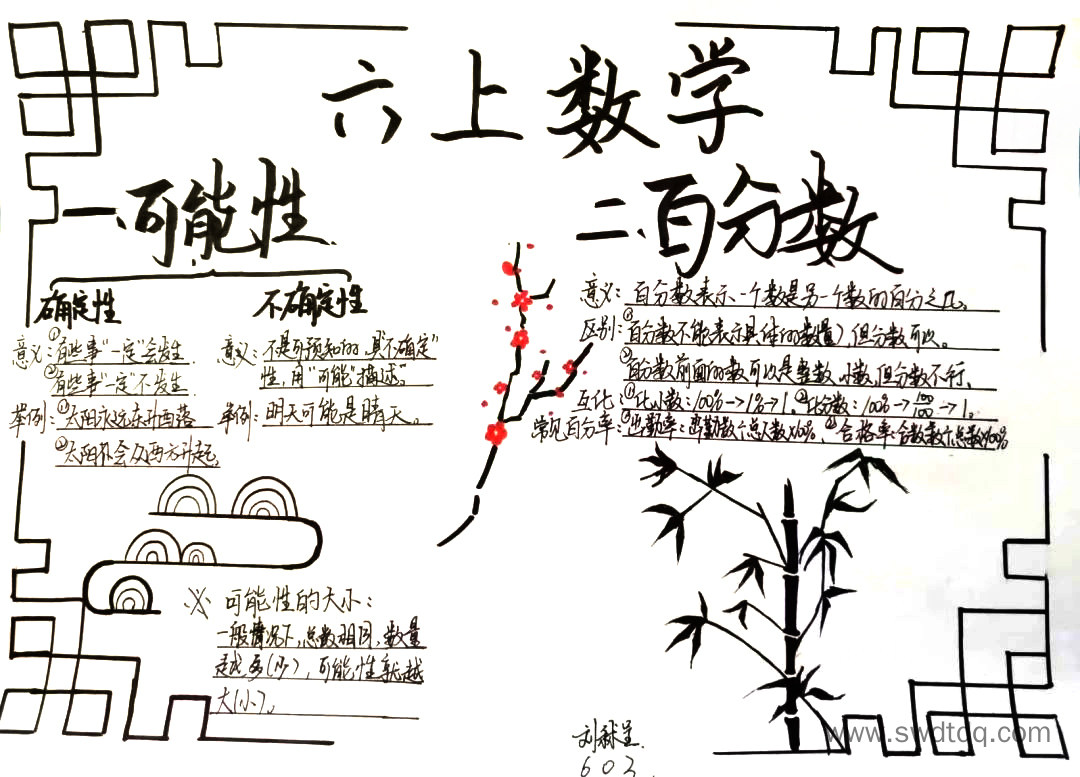 六上数学
一、可能性
确定性
意义:①有些事"一定"会发生
②有些事"一定"不发生
举例:①太阳永远东升西落
②太阳不会从西方升起。
不确定性
意义:不是可预知的,具"不确定"
性,用"可能"描述。
举例:明天可能是晴天。
※ 可能性的大小:
一般情况下,总数相同,数量
越多(少),可能性就越
大(小)。
二、百分数
意义:百分数表示一个数是另一个数的百分之几。
区别:①百分数不能表示具体的数量,但分数可以。
②百分数前面的数可以是整数、小数,但分数不行。
互化:①化小数:100%→1%→1、②化分数:100%→100/100→1。
常见百分率:①出勤率:出勤数÷总人数×100%、②合格率:合数÷总数×100%
603
www.swdtdq.com